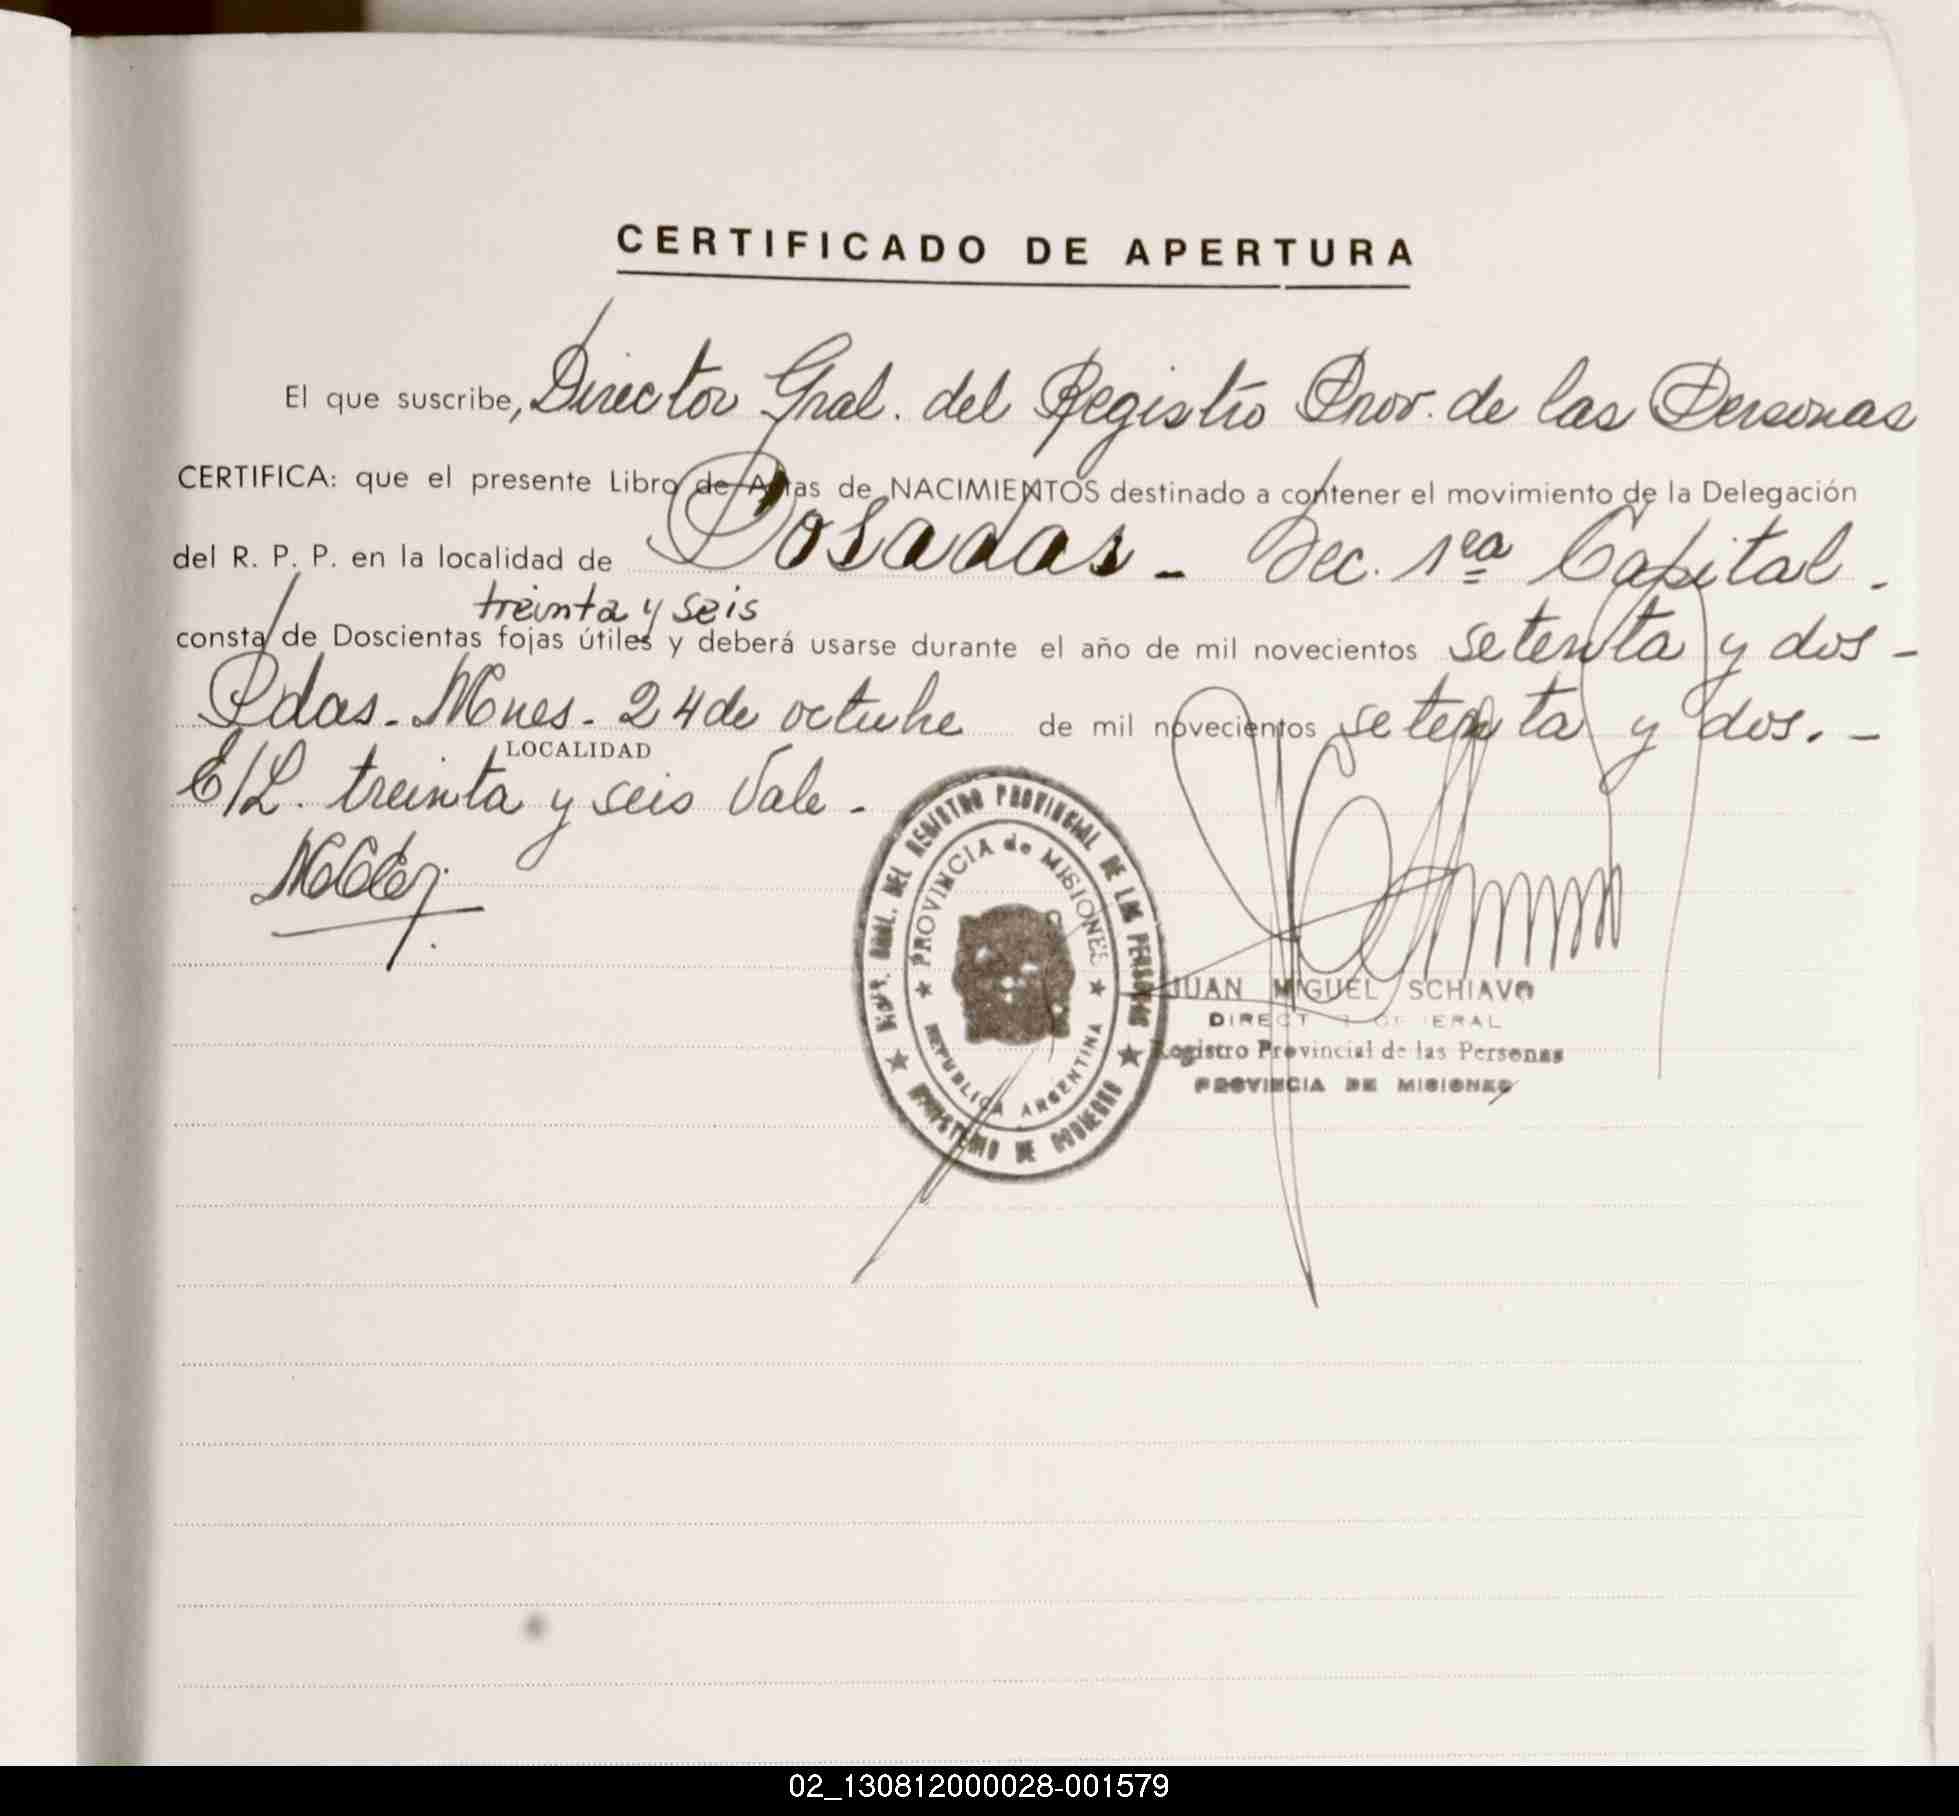 CERTIFICADO DE APERTURA
El que suscribe, Director Gral. del Registro Prov. de las Personas
CERTIFICA: que el presente Libro de Actas de NACIMIENTOS destinado a contener el movimiento de la Delegación
del R. P. P. en la localidad de Posadas - Sec. 1ra Capital.
treinta y seis
consta de Doscientas fojas útiles y deberá usarse durante el año de mil novecientos setenta y dos -
Pdas. Mnes. 24 de octubre de mil novecientos setenta y dos. -
LOCALIDAD
E/L. treinta y seis Vale -
DEL REGISTRO PROVINCIAL DE LAS PERSONAS
PROVINCIA de MISIONES
REPUBLICA ARGENTINA
MINISTERIO DE GOBIERNO
JUAN MIGUEL SCHIAVO
DIRECTOR GENERAL
Registro Provincial de las Personas
PROVINCIA DE MISIONES
02_130812000028-001579